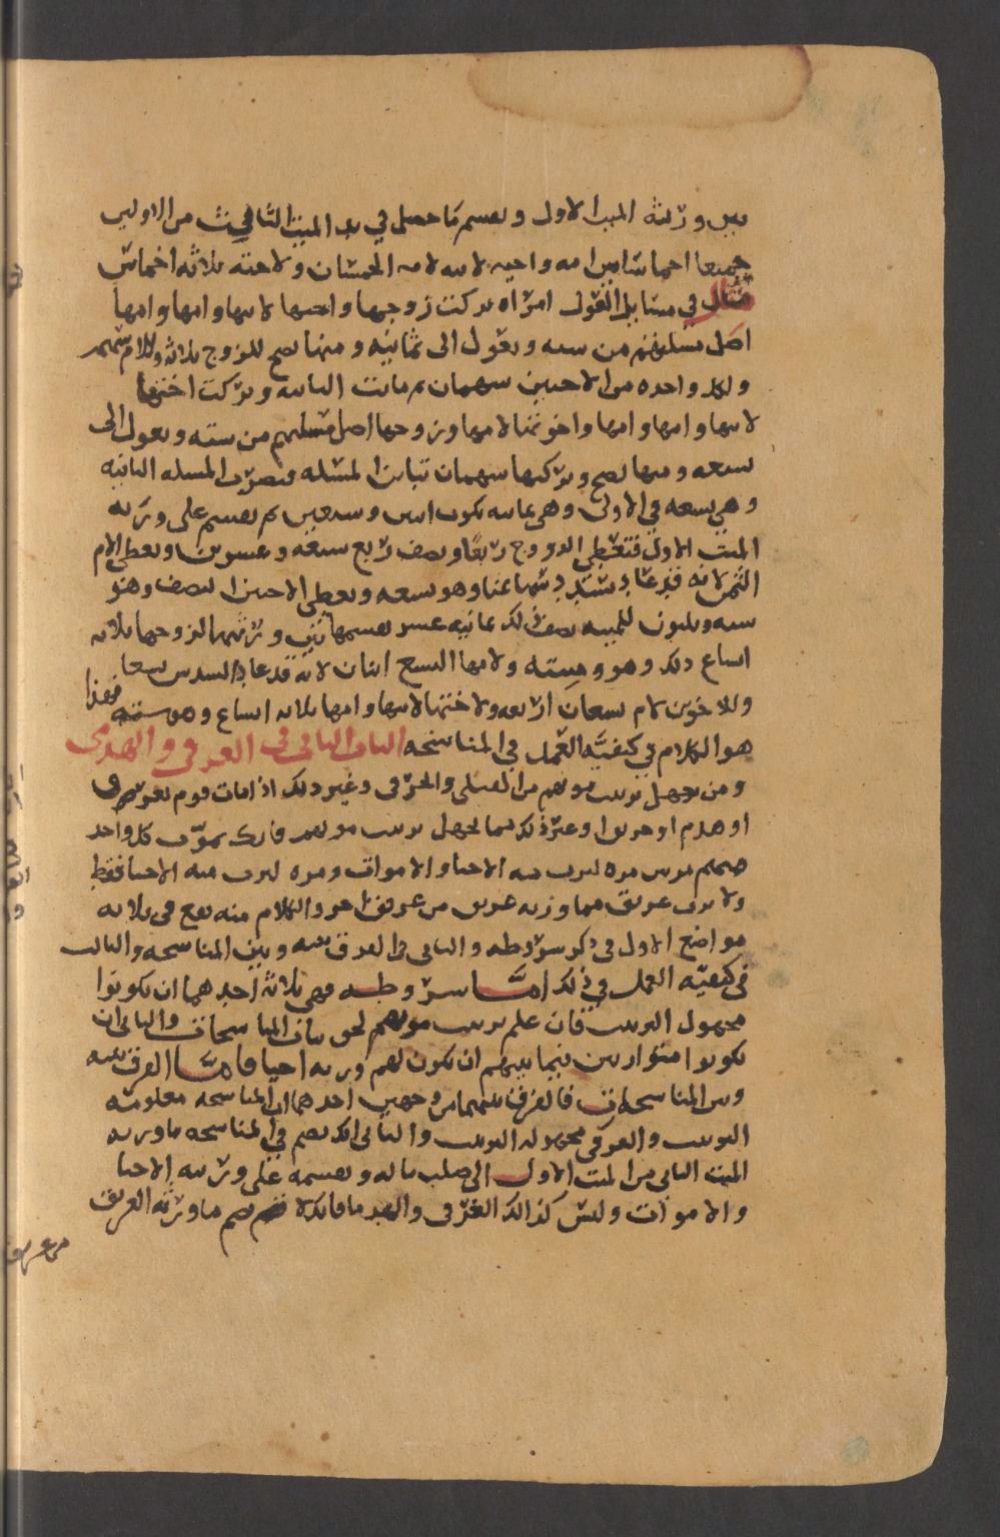 بين ورثة الميت الاول ويقسم ما حصل في يد الميت الثاني من الاولين
جميعا اخماسا بين امه واخيه لابيه لامه الخمسان ولاخته ثلاثة اخماس
مثال في مسايل العول امراه تركت زوجها واختها لابيها وامها وامها
اصل مسلتهم من سته وتعول الى ثمانيه ومنها تصح للزوج ثلاثة وللام سهم
ولكل واحده من الاختين سهمان ثم ماتت الثانيه وتركت اختها
لابيها وامها وامها واخوتها لامها وزوجها اصل مسلتهم من سته وتعول الى
تسعه ومنها تصح وتركتها سهمان تباين المسله فتضرب المسله الثانيه
وهي تسعه في الاولى وهي ثمانيه تكون اثنين وسبعين ثم تقسم على ورثه
الميت الاول فتعطي الزوج ربعا ونصف ربع سبعه وعشرين وتعطي الام
الثمن لانه قد عاد سدسها ثمنا وهو تسعه وتعطي الاختين النصف وهو
سته وثلثون للميته نصف ذلك ثمانيه عشر تقسمها بين ورثتها لزوجها ثلاثه
اتساع ذلك وهو سته ولامها التسع اثنان لانه قد عاد السدس تسعا
وللاخوين لام تسعان اربعه ولاختها لابيها وامها ثلاثه اتساع وهو سته فهذا
هو الكلام في كيفيه العمل في المناسخه الباب الثاني في الغرقى والهدمى
ومن يجهل ترتيب موتهم من القتلى والحرقى وغير ذلك اذا مات قوم بغرق
او هدم او حريق او غير ذلك مما يجهل ترتيب موتهم فانك تموت كل واحد
منهم مرتين مره يرث منه الاحيا والاموات ومره يرث منه الاحيا فقط
ولا يرث غريق مما ورثه غريق من غريق اخر والكلام منه يقع في ثلاثه
مواضع الاول في ذكر شروطه والثاني في الفرق بينه وبين المناسخه والثالث
في كيفيه العمل في ذلك اما شروطه فهي ثلاثة احدها ان يكونوا
مجهول الترتيب فان علم ترتيب موتهم لحق بباب المناسخات والثاني ان
يكونوا متوارثين فيما بينهم ان يكون لهم ورثه احيا فاما الفرق بينه
وبين المناسخات فالفرق بينهما من وجهين احدهما ان المناسخه معلومه
الترتيب والغرقى مجهوله الترتيب والثاني انك تضم في المناسخه ما ورثه
الميت الثاني من الميت الاول الى صلب ماله وتقسمه على ورثته الاحيا
والاموات وليس كذلك الغرقى والهدما فانك لا تضم ما ورثه الغريق
من غريق